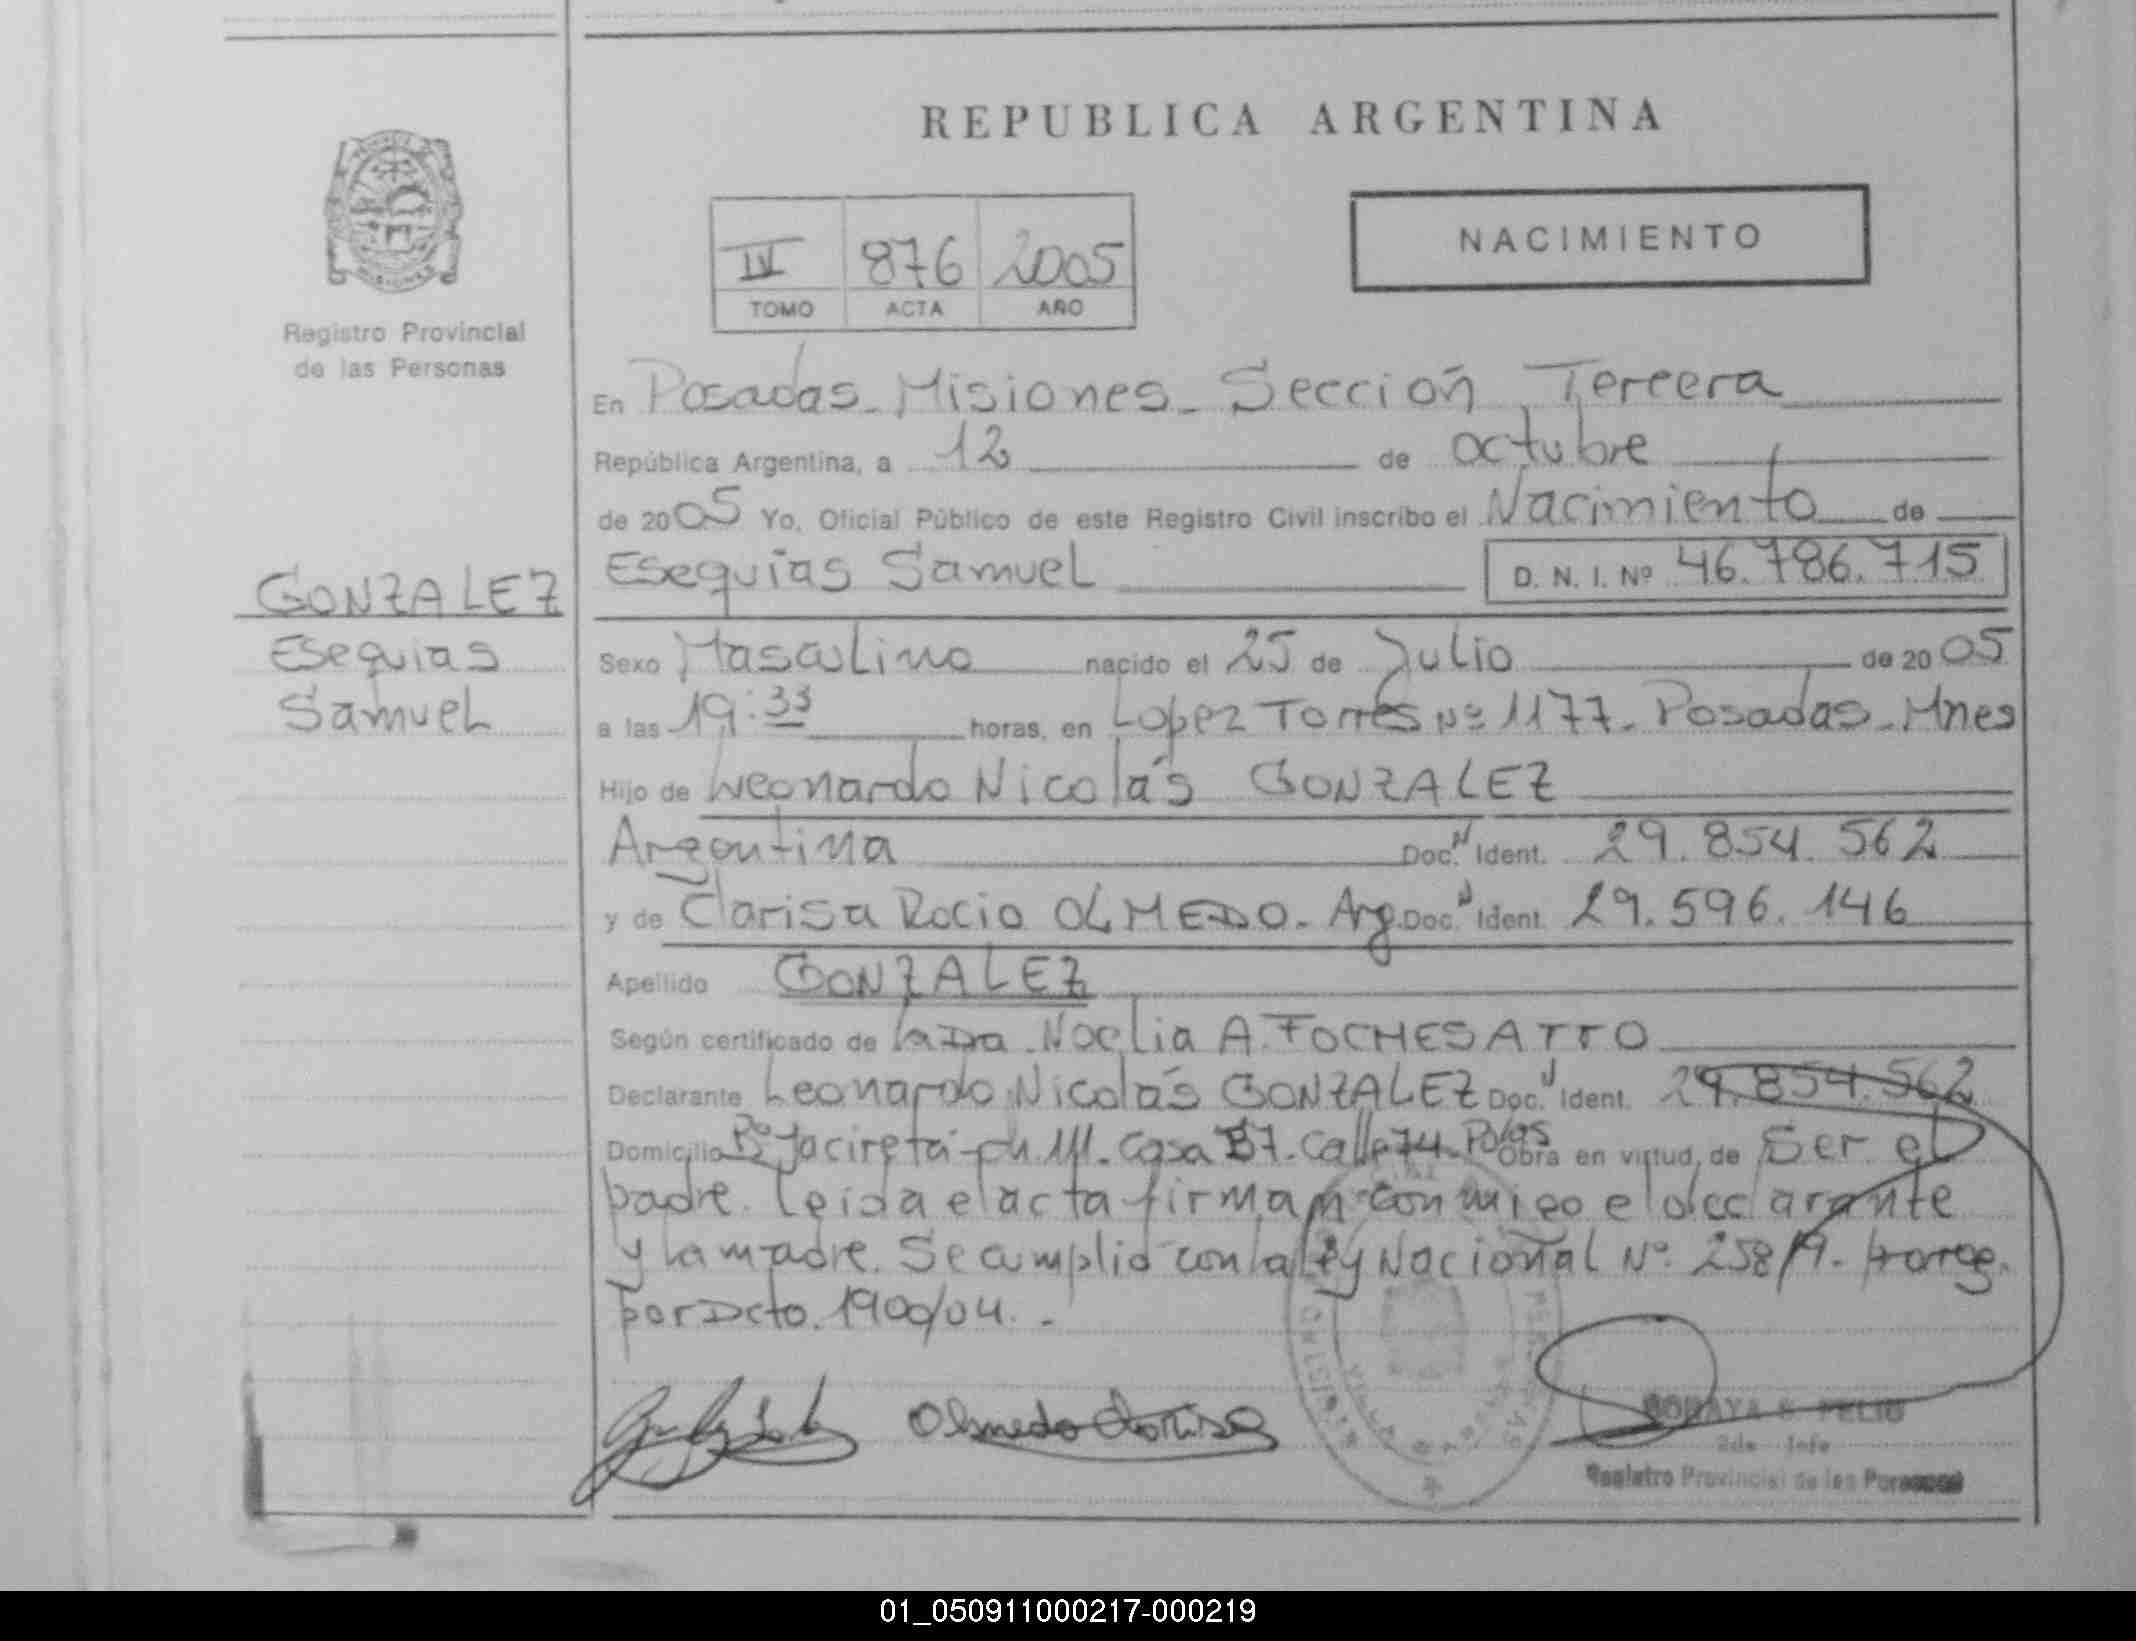 REPUBLICA ARGENTINA
NACIMIENTO
IV 876 2005
TOMO ACTA AÑO
Registro Provincial
de las Personas
En Posadas - Misiones - Sección Tercera
República Argentina, a 12 de octubre
de 2005 Yo, Oficial Público de este Registro Civil inscribo el Nacimiento de
Esequias Samuel D. N. I. Nº 46.786.715
GONZALEZ
Esequias
Samuel
Sexo Masculino nacido el 25 de Julio de 2005
a las 19:33 horas, en Lopez Torres Nº 1177 - Posadas - Mnes
Hijo de Leonardo Nicolás GONZALEZ
Argentina Doc. N Ident. 29.854.562
y de Clarisa Rocio OLMEDO - Arg. Doc. N Ident. 29.596.146
Apellido GONZALEZ
Según certificado de la Dra. Noelia A. FOCHESATTO
Declarante Leonardo Nicolás GONZALEZ Doc. N Ident. 29.854.562
Domicilio Bº Yacireta - ch. 111 - Casa B7 - Calle 74 - Pdas Obra en virtud de Ser el
padre. Leida el acta firman conmigo el declarante
y la madre. Se cumplió con la Ley Nacional Nº 25819 - Prorrog.
por Dcto. 1900/04. -
Olmedo Clarisa
SORAYA S. FELIU
2da. Jefe
Registro Provincial de las Personas
01_050911000217-000219